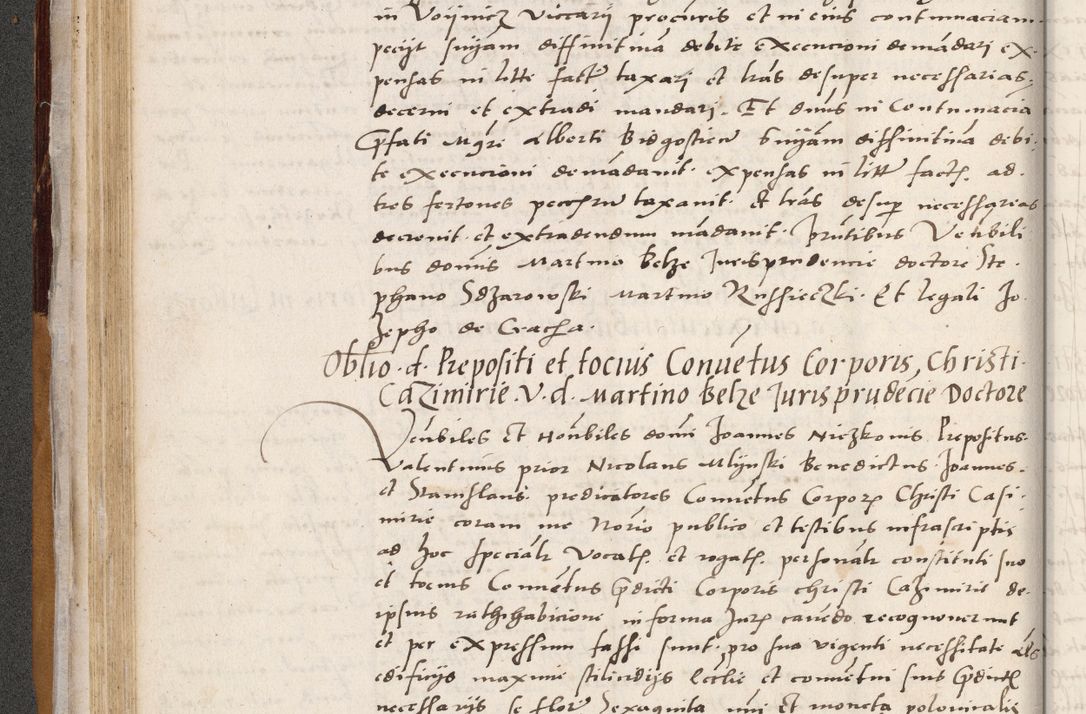 in Voijnicz Viccarij procuris et in eius contumaciam
peciit sniam diffinitiuam debite execucioni demandari ex-
pensas in litte factas taxari et lras desuper necessarias
decerni et extradi mandari. Et dnus in Contumacia
pfati Mgri Alberti Bidgosticz sniam diffinitiuam debi-
te execucioni demadauit. expensas in litt fact. ad.
tres fertones pecchru taxauit. et lras desup necessarias
decreuit. et extradendum madauit. Prntibus Venbili
bus domis Martino Belze Jurisprudencie doctore Ste
phano Sdzarowski Martino Russieczki. Et legali Jo
zepho de Cracha.
Oblio. d. Prepositi et tocius Conuetus Corporis Christi.
Cazimirie. V. d. Martino Belze Jurisprudecie Doctore
Venbiles et Honbiles domi Joannes Niezkonis Prepositus
Valentinus prior Nicolaus Mlijnski Benedictus. Joannes.
et Stanislaus. predicatores Conuetus Corporis Christi Casi-
mirie coram me Norio publico et testibus infrascriptis
ad hoc specialr Vocat. et rogat. personalr constituti suo
et tocius Conuetus pdicti Corporis christi Cazimirie de
ipsius rathihabicione in forma Jur. cauedo recognouerunt
et per expressum fassi sunt. pro sua vigenti necessitate
edificijs maxime stilicidijs Ecclie et conuetui suis pdict
necessarijs se flor sexaginta in et moneta polonicalis